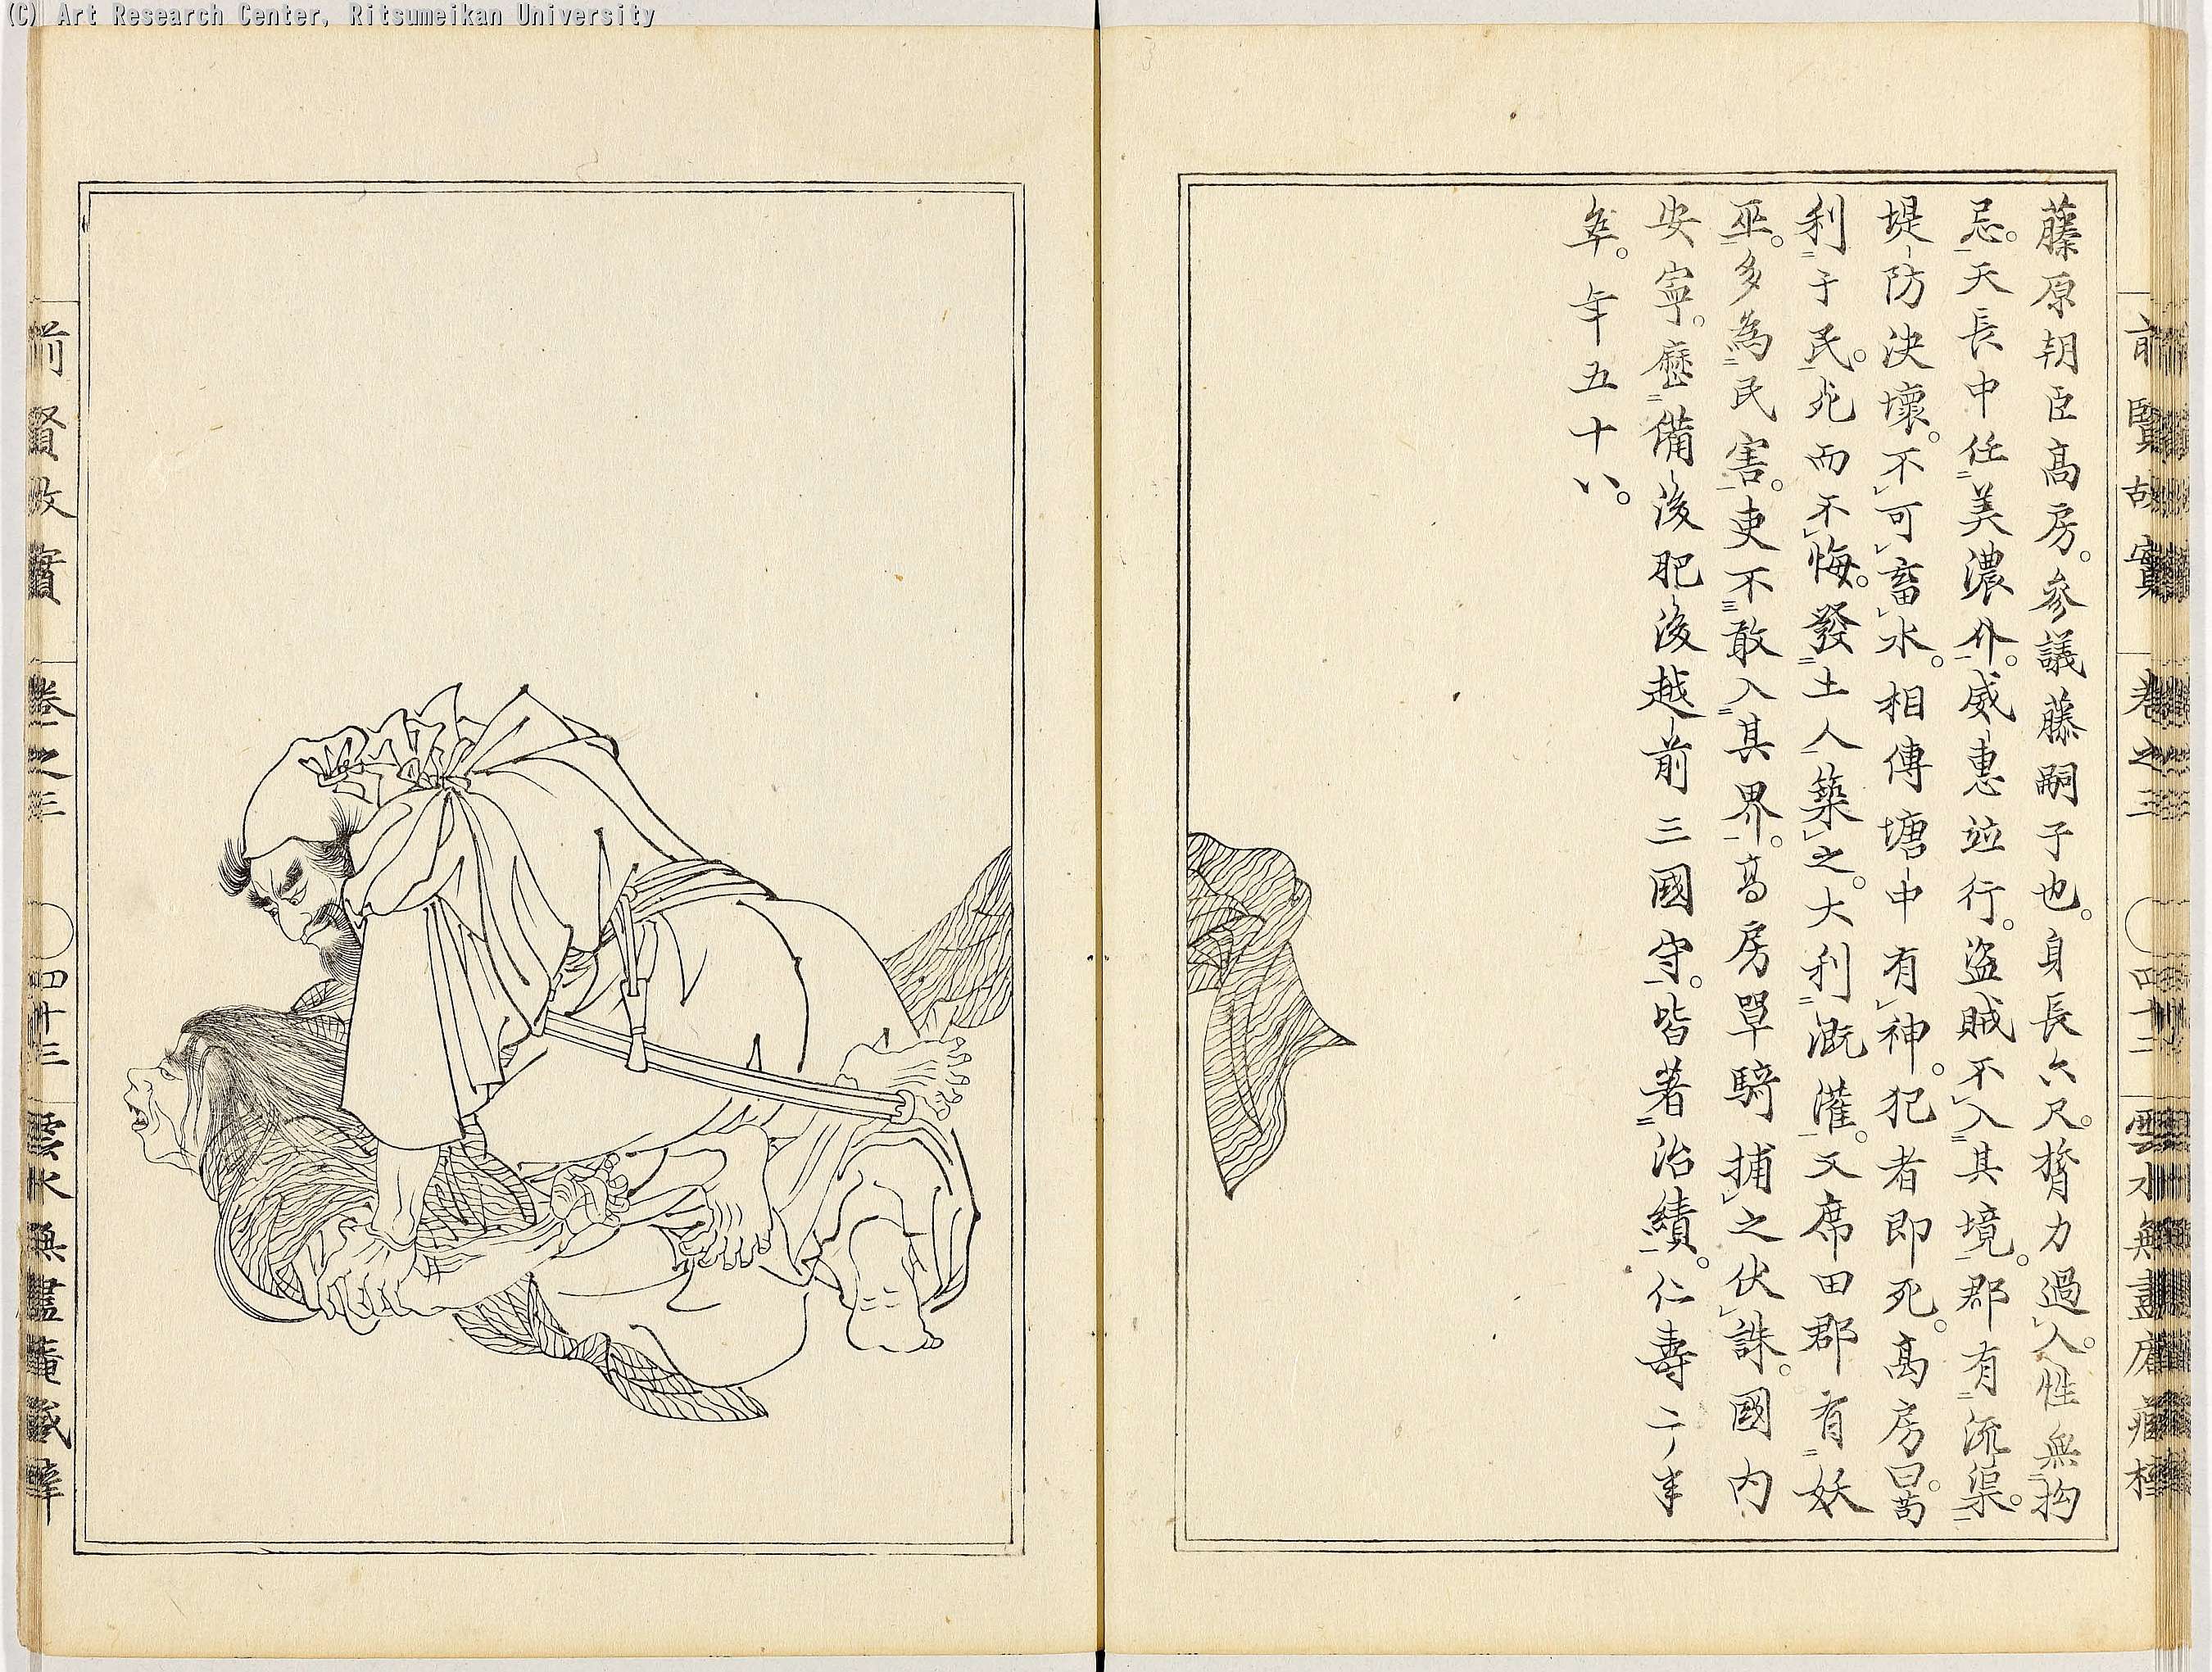 (C) Art Research Center, Ritsumeikan University
前賢故實 巻之三 ○四十二 雲水無盡庵藏梓
藤原朝臣高房。參議藤嗣子也。身長六尺。膂力過人。性無拘
忌。天長中任美濃介。威惠竝行。盜賊不入其境。郡有流渠。
堤防決壞。不可畜水。相傳塘中有神。犯者即死。高房曰。苟
利于民。死而不悔。發土人築之。大利漑灌。又席田郡有妖
巫。多為民害。吏不敢入其界。高房單騎捕之伏誅。國内
安寧。歷備後肥後越前三國守。皆著治績。仁壽二年
卒。年五十八。
前賢故實 巻之三 ○四十三 雲水無盡庵藏梓